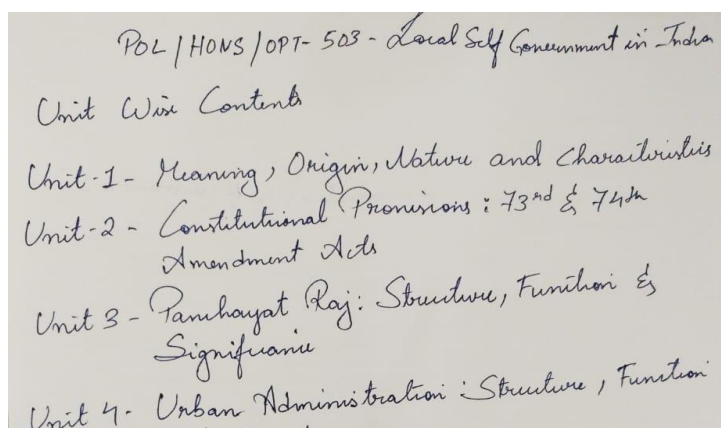 POL/HONS/OPT-503 - Local Self Government in India
Unit Wise Contents
Unit-1 - Meaning, Origin, Nature and Characteristics
Unit-2 - Constitutional Provisions : 73rd & 74th
Amendment Acts
Unit 3 - Panchayat Raj: Structure, Function &
Significance
Unit 4 - Urban Administration : Structure, Function